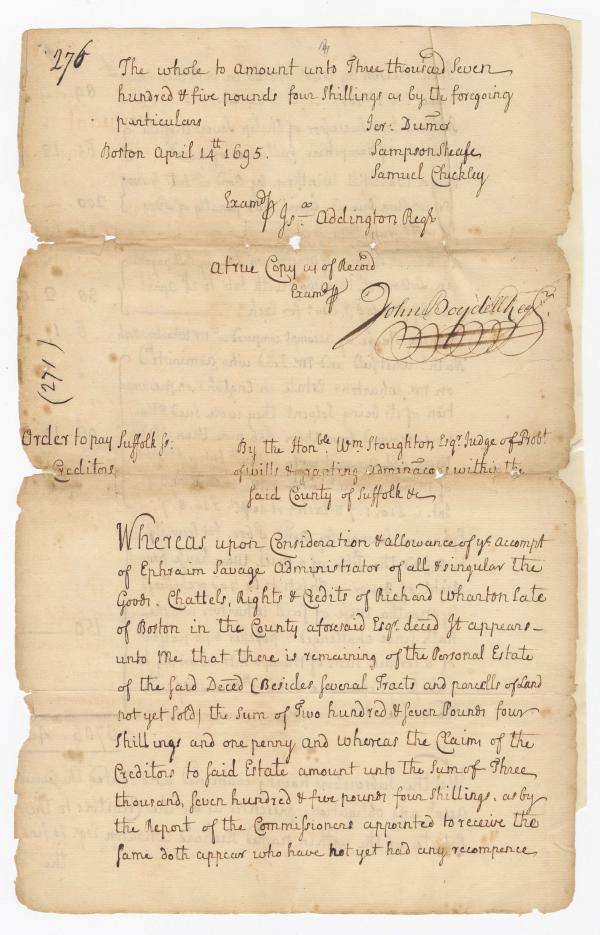 276
The whole to amount unto Three thousand Seven
hundred & five pounds four Shillings as by the foregoing
particulars
Jer: Dumer
Boston April 14th 1695.
Sampson Sheafe
Samuel Checkley
Examd p
Jsa Addington Regr
A true Copy as of Record
Examd p
John Boydell Regr.
(271)
Order to pay
Creditors
Suffolk ss:
By the Honble Wm Stoughton Esqr. Judge of Probt
of wills & granting Adminacons within the
said County of Suffolk &c
Whereas upon Consideration & allowance of ye. accompt
of Ephraim Savage Administrator of all & singular the
Goods, Chattels, Rights & Credits of Richard Wharton Late
of Boston in the County aforesaid Esqr. deced It appears
unto Me that there is remaining of the Personal Estate
of the said Deced (Besides Several Tracts and parcells of Land
not yet Sold) the Sum of Two hundred & Seven Pounds four
Shillings and one penny And whereas the Claims of the
Creditors to said Estate amount unto the Sum of Three
thousand, Seven hundred & five pounds four Shillings, as by
the Report of the Commissioners appointed to receive the
same doth appear who have not yet had any recompence